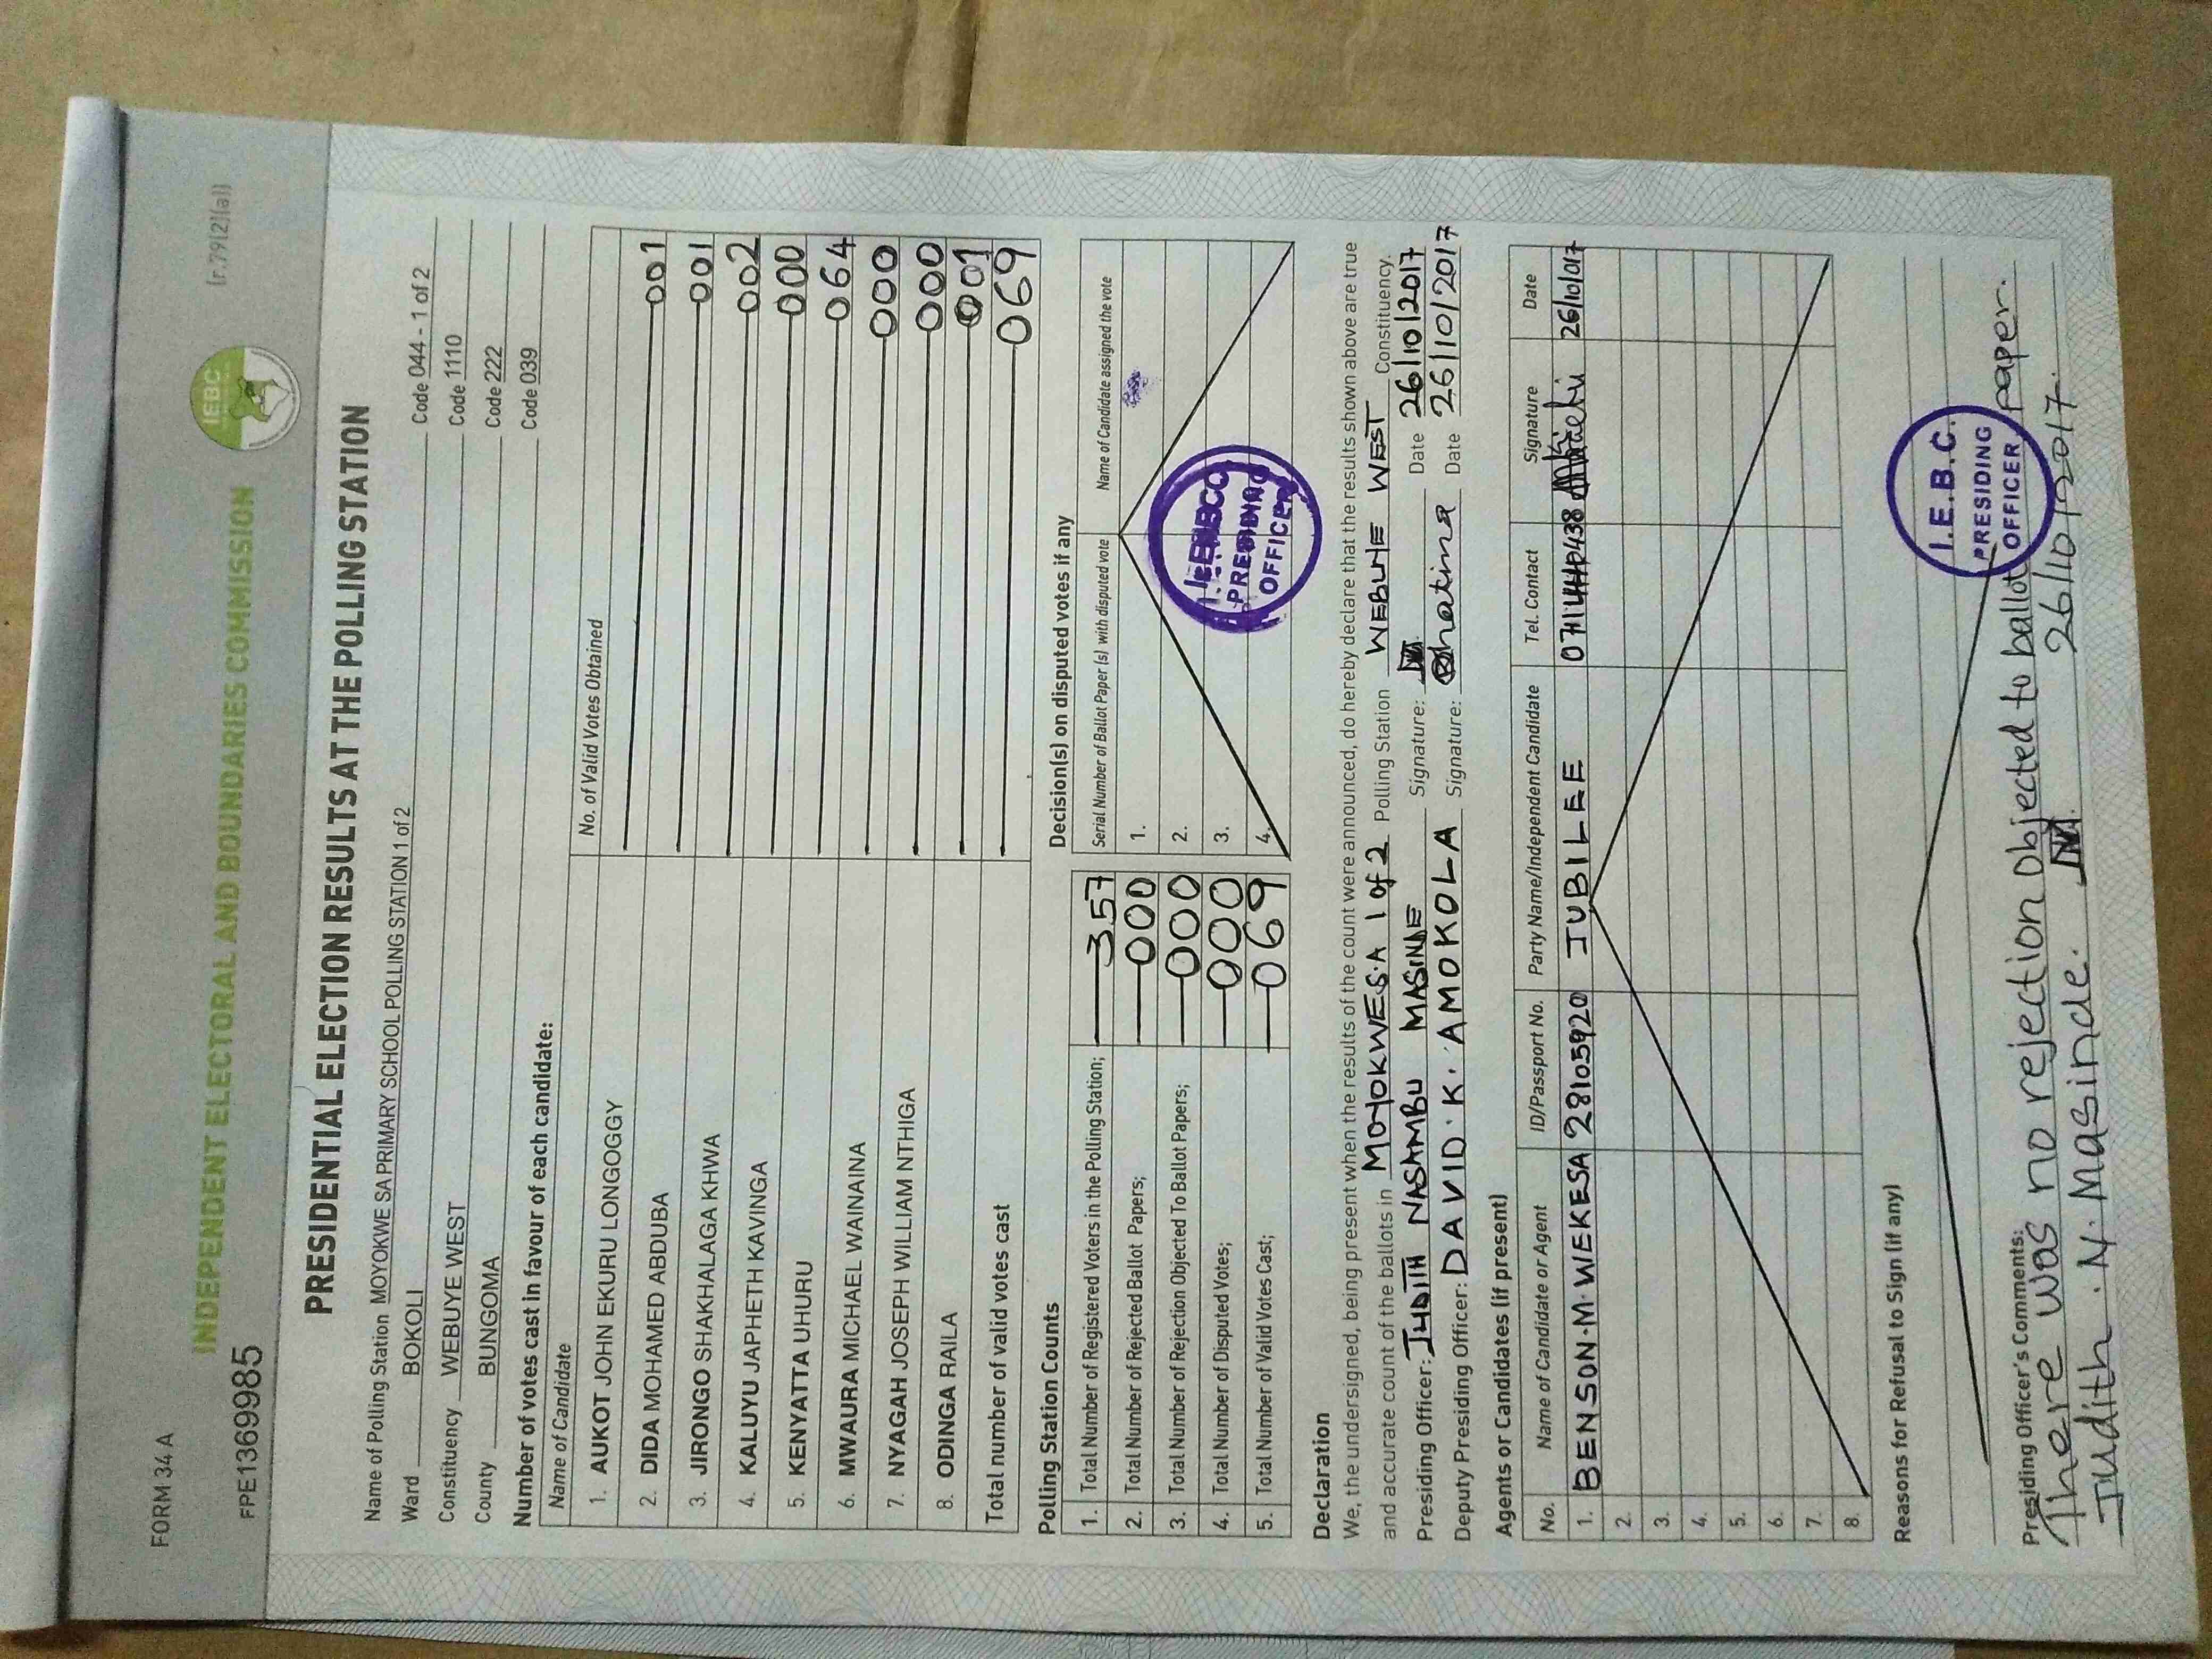 FORM 34 A
(r.79(2)(a))
FPE1369985
INDEPENDENT ELECTORAL AND BOUNDARIES COMMISSION
IEBC
PRESIDENTIAL ELECTION RESULTS AT THE POLLING STATION
Name of Polling Station MOYOKWE SA PRIMARY SCHOOL POLLING STATION 1 of 2 Code 044 - 1 of 2
Ward BOKOLI Code 1110
Constituency WEBUYE WEST Code 222
County BUNGOMA Code 039
Number of votes cast in favour of each candidate:
Name of Candidate No. of Valid Votes Obtained
1. AUKOT JOHN EKURU LONGOGGY 001
2. DIDA MOHAMED ABDUBA 001
3. JIRONGO SHAKHALAGA KHWA 002
4. KALUYU JAPHETH KAVINGA 000
5. KENYATTA UHURU 064
6. MWAURA MICHAEL WAINAINA 000
7. NYAGAH JOSEPH WILLIAM NTHIGA 000
8. ODINGA RAILA 001
Total number of valid votes cast 069
Polling Station Counts
1. Total Number of Registered Voters in the Polling Station; 357
2. Total Number of Rejected Ballot Papers; 000
3. Total Number of Rejection Objected To Ballot Papers; 000
4. Total Number of Disputed Votes; 000
5. Total Number of Valid Votes Cast; 069
Decision(s) on disputed votes if any
Serial Number of Ballot Paper (s) with disputed vote Name of Candidate assigned the vote
1.
2.
3.
4.
PRESIDING
OFFICER
Declaration
We, the undersigned, being present when the results of the count were announced, do hereby declare that the results shown above are true
and accurate count of the ballots in MOYOKWESA 1 of 2 Polling Station WEBUYE WEST Constituency.
Presiding Officer: JUDITH NASAMBU MASINDE Signature: Date 26/10/2017
Deputy Presiding Officer: DAVID. K. AMOKOLA Signature: Date 26/10/2017
Agents or Candidates (if present)
No. Name of Candidate or Agent ID/Passport No. Party Name/Independent Candidate Tel. Contact Signature Date
1. BENSON.M.WEKESA 28105920 JUBILEE 26/10/017
2.
3.
4.
5.
6.
7.
8.
Reasons for Refusal to Sign (if any)
I.E.B.C.
PRESIDING
OFFICER
Presiding Officer's Comments:
There was no rejection objected to ballot paper.
Judith . N. Masinde. 26/10/2017.